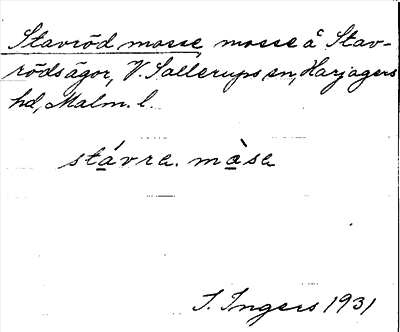 Stavröd mosse, mosse å Stav-
rödsägor, V. Sallerups sn, Harjagers
hd, Malm. l.
stávre. màse
I. Ingers 1931